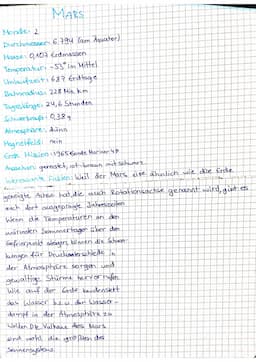 MARS
Monde: 2
Durchmesser: 6.794 (am Äquator)
Masse: 0,107 Erdmassen
Temperatur: -53° im Mittel
Umlaufzeit: 687 Erdtage
Bahnradius: 228 Mio. km
Tageslänge: 24,6 Stunden
Schwerkraft: 0,38 g
Atmosphäre: dünn
Magnetfeld: nein
Erste Mission: 1965 Sonde Mariner 4
Aussehen: gemasert, rot-braun mit schwarz
Fakten: Weil der Mars eine ähnlich wie die Erde
geneigte Achse hat, die auch Rotationsachse genannt wird, gibt es
auch dort ausgeprägte Jahreszeiten
Wenn die Temperaturen an den
wärmsten Sommertagen über den
Gefrierpunkt steigen, können die
für Druckunterschiede in
der Atmosphäre sorgen und
gewaltige Stürme hervorrufen
Wie auf der Erde kondensiert
das Wasser bzw. der Wasser-
dampf in der Atmosphäre zu
Wolken. Die Vulkane des Mars
sind wohl die größten des
Sonnensystems.